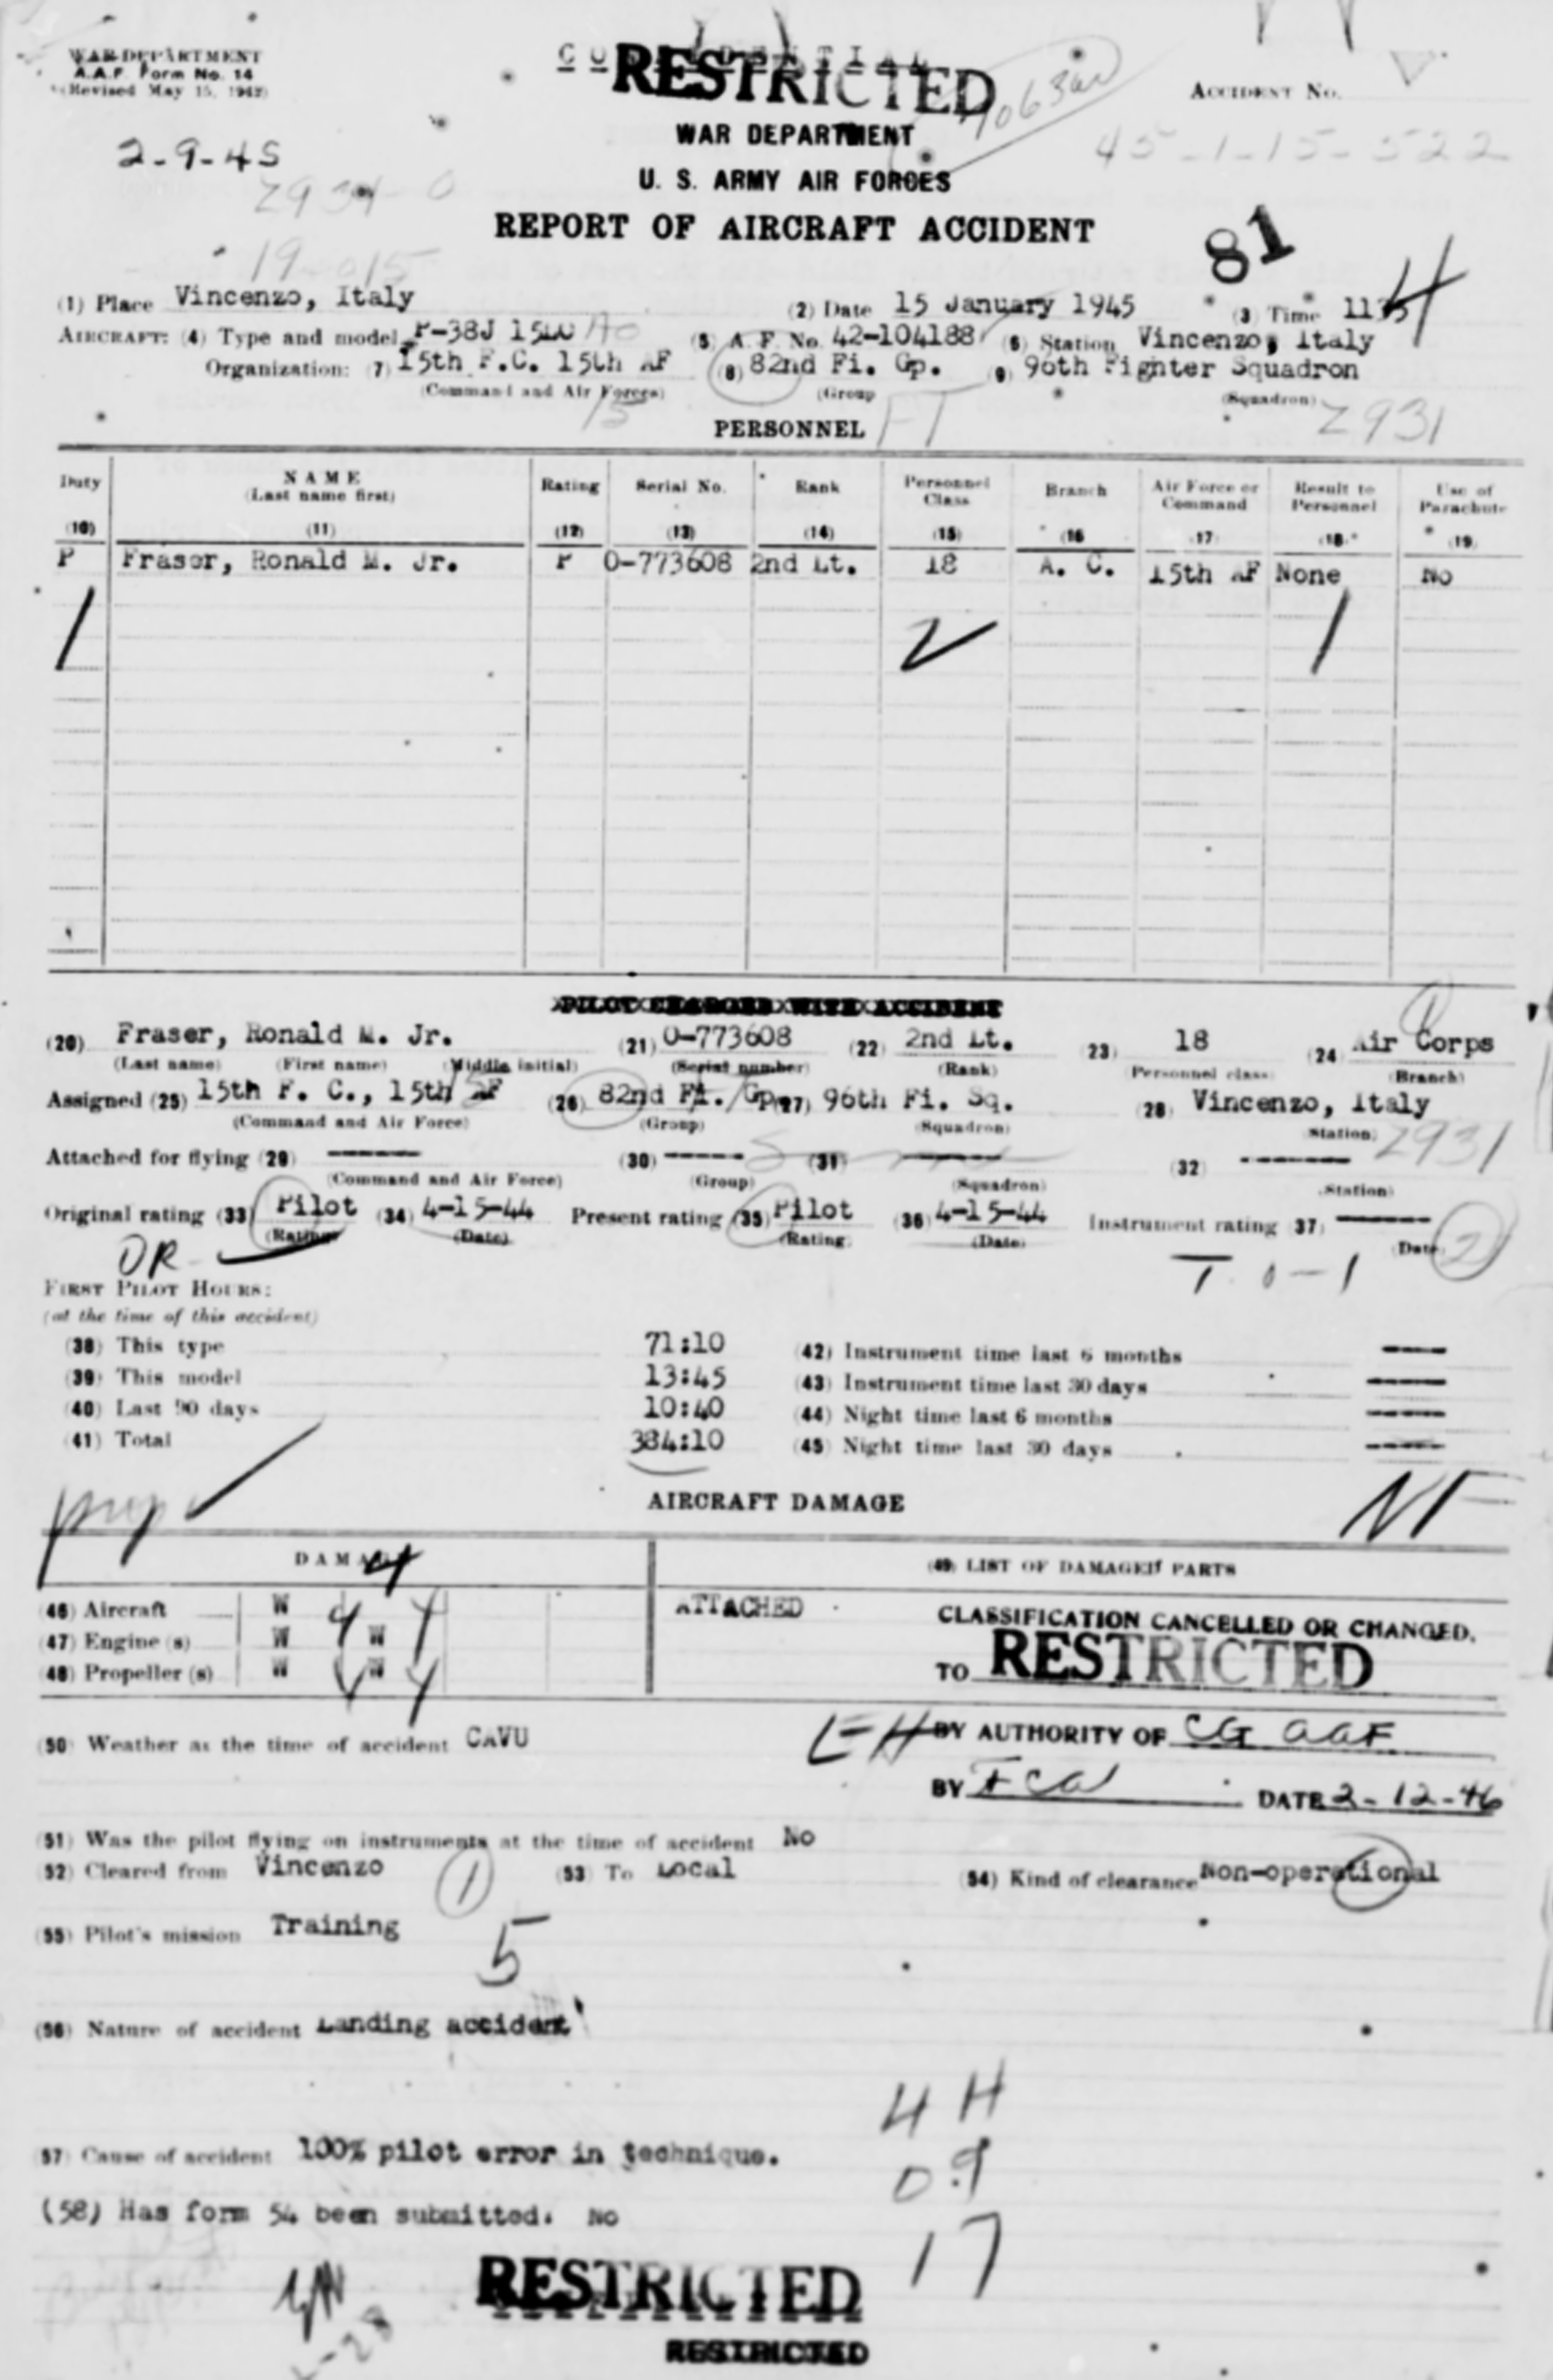 WAR DEPARTMENT
A.A.F. Form No. 14
(Revised May 15, 1942)
RESTRICTED
ACCIDENT No.
45-1-15-522
WAR DEPARTMENT
2-9-45
U. S. ARMY AIR FORCES
REPORT OF AIRCRAFT ACCIDENT
81
(1) Place Vincenzo, Italy (2) Date 15 January 1945 (3) Time
AIRCRAFT: (4) Type and model P-38J (5) A. F. No. 42-104188 (6) Station Vincenzo, Italy
Organization: (7) 15th F.C. 15th AF (8) 82nd Fi. Gp. (9) 96th Fighter Squadron
(Command and Air Forces) (Group (Squadron)
PERSONNEL
Z931
Duty NAME Rating Serial No. Rank Personnel Class Branch Air Force or Command Result to Personnel Use of Parachute
(Last name first)
(10) (11) (12) (13) (14) (15) (16 (17) (18) (19)
P Fraser, Ronald M. Jr. P O-773608 2nd Lt. 18 A. C. 15th AF None No
PILOT CHARGED WITH ACCIDENT
(20) Fraser, Ronald M. Jr. (21) O-773608 (22) 2nd Lt. (23) 18 (24) Air Corps
(Last name) (First name) (Middle initial) (Serial number) (Rank) (Personnel class) (Branch)
Assigned (25) 15th F. C., 15th AF (26) 82nd Fi. Gp. (27) 96th Fi. Sq. (28) Vincenzo, Italy
(Command and Air Force) (Group) (Squadron) (Station)
Z931
Attached for flying (29) ------ (30) ------ (31) ------ (32) ------
(Command and Air Force) (Group) (Squadron) (Station)
Original rating (33) Pilot (34) 4-15-44 Present rating (35) Pilot (36) 4-15-44 Instrument rating (37) ------
(Rating) (Date) (Rating) (Date) (Date)
2
OR
T 0-1
FIRST PILOT HOURS:
(at the time of this accident)
(38) This type 71:10 (42) Instrument time last 6 months ----
(39) This model 13:45 (43) Instrument time last 30 days ----
(40) Last 90 days 10:40 (44) Night time last 6 months ----
(41) Total 384:10 (45) Night time last 30 days ----
AIRCRAFT DAMAGE
DAMAGE (49) LIST OF DAMAGED PARTS
(46) Aircraft W ATTACHED
(47) Engine (s) W W
(48) Propeller (s) W W
CLASSIFICATION CANCELLED OR CHANGED.
TO RESTRICTED
BY AUTHORITY OF CG AAF
(50) Weather as the time of accident CAVU
BY FCW DATE 2-12-46
(51) Was the pilot flying on instruments at the time of accident No
(52) Cleared from Vincenzo (53) To Local (54) Kind of clearance Non-operational
1
(55) Pilot's mission Training
5
(56) Nature of accident Landing accident
4 H
(57) Cause of accident 100% pilot error in technique.
09
(58) Has form 54 been submitted. No
17
RESTRICTED
RESTRICTED